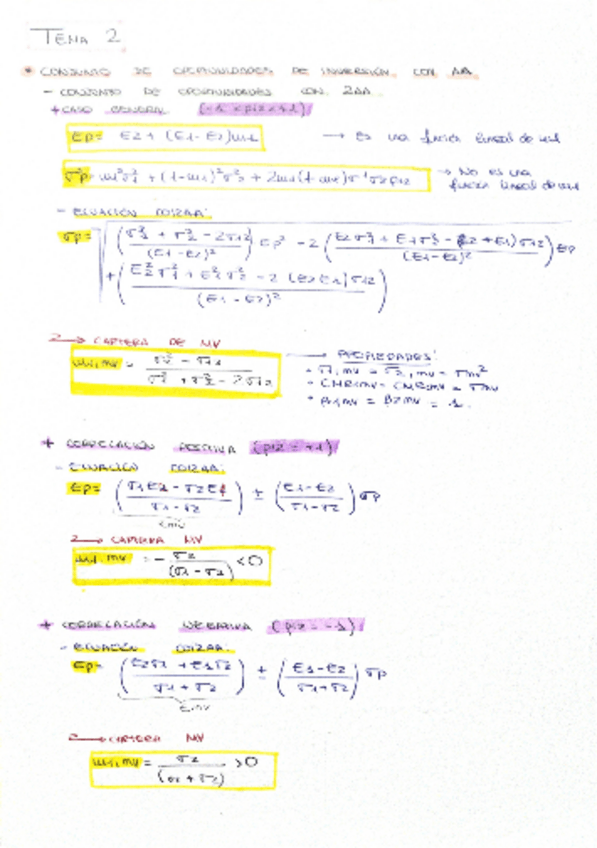 TEMA 2
* CONJUNTO DE OPORTUNIDADES DE INVERSIÓN CON AA
- CONJUNTO DE OPORTUNIDADES CON 2AA
+ CASO GENERAL (-1 < ρ12 < +1)
Ep = E2 + (E1 - E2)w1 → Es una función lineal de w1
σ²p = w1²σ1² + (1-w1)²σ2² + 2w1(1-w1)σ1σ2ρ12 → No es una función lineal de w1
- ECUACIÓN
σp = √ ((σ1² + σ2² - 2σ12)/(E1-E2)²) Ep² - 2 ((E2σ1² + E1σ2² - (E2+E1)σ12)/(E1-E2)²) Ep
+ ((E2²σ1² + E1²σ2² - 2(E2E1)σ12)/(E1-E2)²)
→ CARTERA DE MV
w1,mv = (σ2² - σ12)/(σ1² + σ2² - 2σ12) → PROPIEDADES:
• σ1,mv = σ2,mv = σmv²
• CMR1mv = CMR2mv = σmv
• β1,mv = β2mv = 1.
+ CORRELACIÓN POSITIVA (ρ12 = +1)
- ECUACIÓN
Ep = ((σ1E2 - σ2E1)/(σ1-σ2)) ± ((E1-E2)/(σ1-σ2)) σp
Emv
→ CARTERA MV
w1,mv = - σ2/(σ1-σ2) < 0
+ CORRELACIÓN NEGATIVA (ρ12 = -1)
- ECUACIÓN
Ep = ((E2σ1 + E1σ2)/(σ1+σ2)) ± ((E1-E2)/(σ1+σ2)) σp
Emv
→ CARTERA MV
w1,mv = σ2/(σ1+σ2) > 0